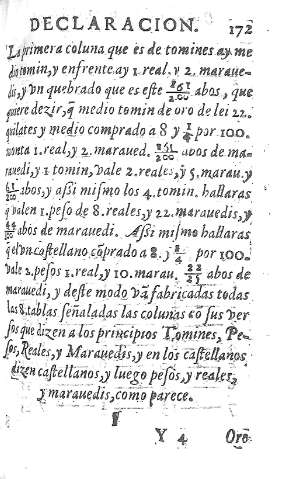 DECLARACION. 172
La primera coluna que es de tomines ay me
dio tomin, y enfrente ay 1. real. y 2. maraue-
dis, y vn quebrado que es este 161/200 abos, que
quiere dezir, q̃ medio tomin de oro de lei 22.
quilates y medio comprado a 8 y 1/4 por 100.
monta 1. real, y 2. maraued. 161/200 abos de ma-
rauedi, y 1 tomin, vale 2. reales, y 5. marau. y
61/100 abos, y assi mismo los 4. tomin. hallaras
q̃ valen 1. peso de 8. reales, y 22. marauedis, y
44/100 abos de marauedi. Assi mismo hallaras
q̃ el vn castellano cõprado a 8. y 1/4 por 100.
vale 2. pesos 1. real, y 10. marau. 22/25 abos de
marauedi, y deste modo vã fabricadas todas
las 8. tablas señaladas las colunas cõ sus ver
sos que dizen a los principios Tomines, Pe-
sos, Reales, y Marauedis, y en los castellanos
dizen castellanos, y luego pesos, y reales,
y marauedis, como parece.
¶
Y 4 Orõ